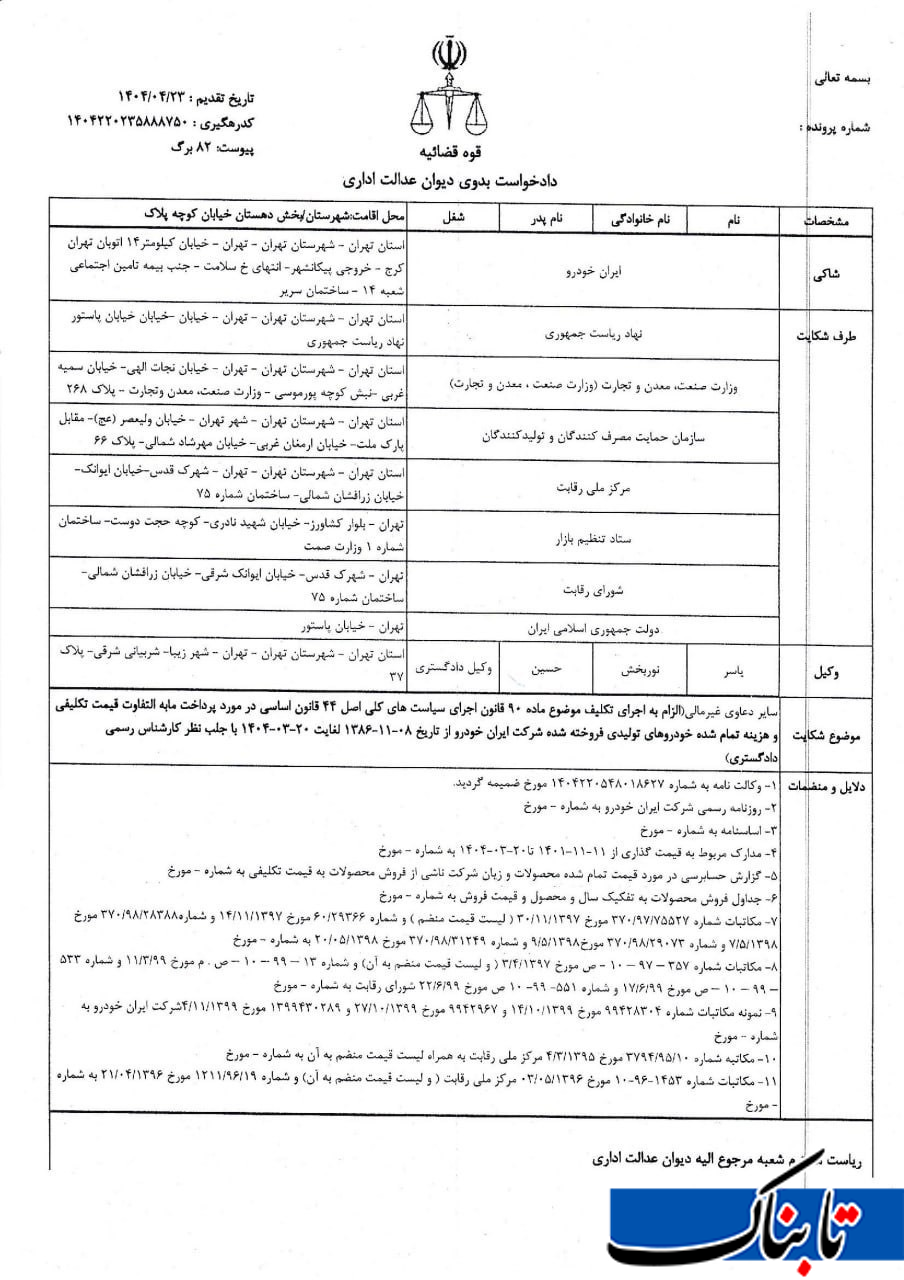 بسمه تعالی
شماره پرونده :
قوه قضائیه
تاریخ تقدیم : ۱۴۰۴/۰۴/۲۳
کدرهگیری : ۱۴۰۴۲۲۰۲۳۵۸۸۸۷۵۰
پیوست: ۸۲ برگ
دادخواست بدوی دیوان عدالت اداری
مشخصات نام نام خانوادگی نام پدر شغل محل اقامت:شهرستان/بخش دهستان خیابان کوچه پلاک
شاکی
ایران خودرو
استان تهران - شهرستان تهران - تهران - خیابان کیلومتر۱۴ اتوبان تهران
کرج - خروجی پیکانشهر- انتهای خ سلامت - جنب بیمه تامین اجتماعی
شعبه ۱۴ - ساختمان سریر
طرف شکایت
نهاد ریاست جمهوری
استان تهران - شهرستان تهران - تهران - خیابان -خیابان خیابان پاستور
نهاد ریاست جمهوری
وزارت صنعت، معدن و تجارت (وزارت صنعت ، معدن و تجارت)
استان تهران - شهرستان تهران - تهران - خیابان نجات الهی- خیابان سمیه
غربی -نبش کوچه پورموسی - وزارت صنعت، معدن وتجارت - پلاک ۲۶۸
سازمان حمایت مصرف کنندگان و تولیدکنندگان
استان تهران - شهرستان تهران - شهر تهران - خیابان ولیعصر (عج)- مقابل
پارک ملت- خیابان ارمغان غربی- خیابان مهرشاد شمالی- پلاک ۶۶
مرکز ملی رقابت
استان تهران - شهرستان تهران - تهران - شهرک قدس-خیابان ایوانک-
خیابان زرافشان شمالی- ساختمان شماره ۷۵
ستاد تنظیم بازار
تهران - بلوار کشاورز- خیابان شهید نادری- کوچه حجت دوست- ساختمان
شماره ۱ وزارت صمت
شورای رقابت
تهران - شهرک قدس- خیابان ایوانک شرقی- خیابان زرافشان شمالی-
ساختمان شماره ۷۵
دولت جمهوری اسلامی ایران
تهران - خیابان پاستور
وکیل یاسر نوربخش حسین وکیل دادگستری
استان تهران - شهرستان تهران - تهران - شهر زیبا- شربیانی شرقی- پلاک
۳۷
موضوع شکایت
سایر دعاوی غیرمالی(الزام به اجرای تکلیف موضوع ماده ۹۰ قانون اجرای سیاست های کلی اصل ۴۴ قانون اساسی در مورد پرداخت مابه التفاوت قیمت تکلیفی
و هزینه تمام شده خودروهای تولیدی فروخته شده شرکت ایران خودرو از تاریخ ۰۸-۱۱-۱۳۸۶ لغایت ۲۰-۰۳-۱۴۰۴ با جلب نظر کارشناس رسمی
دادگستری)
دلایل و منضمات
۱- وکالت نامه به شماره ۱۴۰۴۲۲۰۵۴۸۰۱۸۶۲۷ مورخ ضمیمه گردید.
۲- روزنامه رسمی شرکت ایران خودرو به شماره - مورخ
۳- اساسنامه به شماره - مورخ
۴- مدارک مربوط به قیمت گذاری از ۱۱-۱۱-۱۴۰۱ تا۲۰-۰۳-۱۴۰۴ به شماره - مورخ
۵- گزارش حسابرسی در مورد قیمت تمام شده محصولات و زیان شرکت ناشی از فروش محصولات به قیمت تکلیفی به شماره - مورخ
۶- جداول فروش محصولات به تفکیک سال و محصول و قیمت فروش به شماره - مورخ
۷- مکاتبات شماره ۳۷۰/۹۷/۷۵۵۲۷ مورخ ۳۰/۱۱/۱۳۹۷ ( لیست قیمت منضم ) و شماره ۶۰/۲۹۳۶۶ مورخ ۱۴/۱۱/۱۳۹۷ و شماره۳۷۰/۹۸/۲۸۳۸۸ مورخ
۷/۵/۱۳۹۸ و شماره ۳۷۰/۹۸/۲۹۰۷۳ مورخ۹/۵/۱۳۹۸ و شماره ۳۷۰/۹۸/۳۱۲۴۹ مورخ ۲۰/۰۵/۱۳۹۸ به شماره - مورخ
۸- مکاتبات شماره ۳۵۷ - ۹۷ - ۱۰ - ص مورخ ۳/۴/۱۳۹۷ ( و لیست قیمت منضم به آن) و شماره ۱۳ - ۹۹ - ۱۰ - ص . م مورخ ۱۱/۳/۹۹ و شماره ۵۳۳
- ۹۹ - ۱۰ - ص مورخ ۱۷/۶/۹۹ و شماره ۵۵۱- ۹۹- ۱۰ ص مورخ ۲۲/۶/۹۹ شورای رقابت به شماره - مورخ
۹- نمونه مکاتبات شماره ۹۹۴۲۸۳۰۴ مورخ ۱۴/۱۰/۱۳۹۹ و ۹۹۴۲۹۶۷ مورخ ۲۷/۱۰/۱۳۹۹ و ۱۳۹۹۴۳۰۲۸۹ مورخ ۴/۱۱/۱۳۹۹شرکت ایران خودرو به
شماره - مورخ
۱۰- مکاتبه شماره ۳۷۹۴/۹۵/۱۰ مورخ ۴/۳/۱۳۹۵ مرکز ملی رقابت به همراه لیست قیمت منضم به آن به شماره - مورخ
۱۱- مکاتبات شماره ۱۴۵۳-۹۶-۱۰ مورخ ۰۳/۰۵/۱۳۹۶ مرکز ملی رقابت ( و لیست قیمت منضم به آن) و شماره ۱۲۱۱/۹۶/۱۹ مورخ ۲۱/۰۴/۱۳۹۶ به شماره
- مورخ
ریاست م شعبه مرجوع الیه دیوان عدالت اداری
تابناک